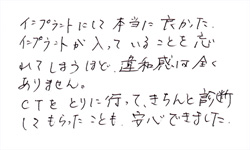 インプラントにして本当に良かった。
インプラントが入っていることを忘
れてしまうほど、違和感は全く
ありません。
CTをとりに行って、きちんと診断
してもらったことも、安心できました。